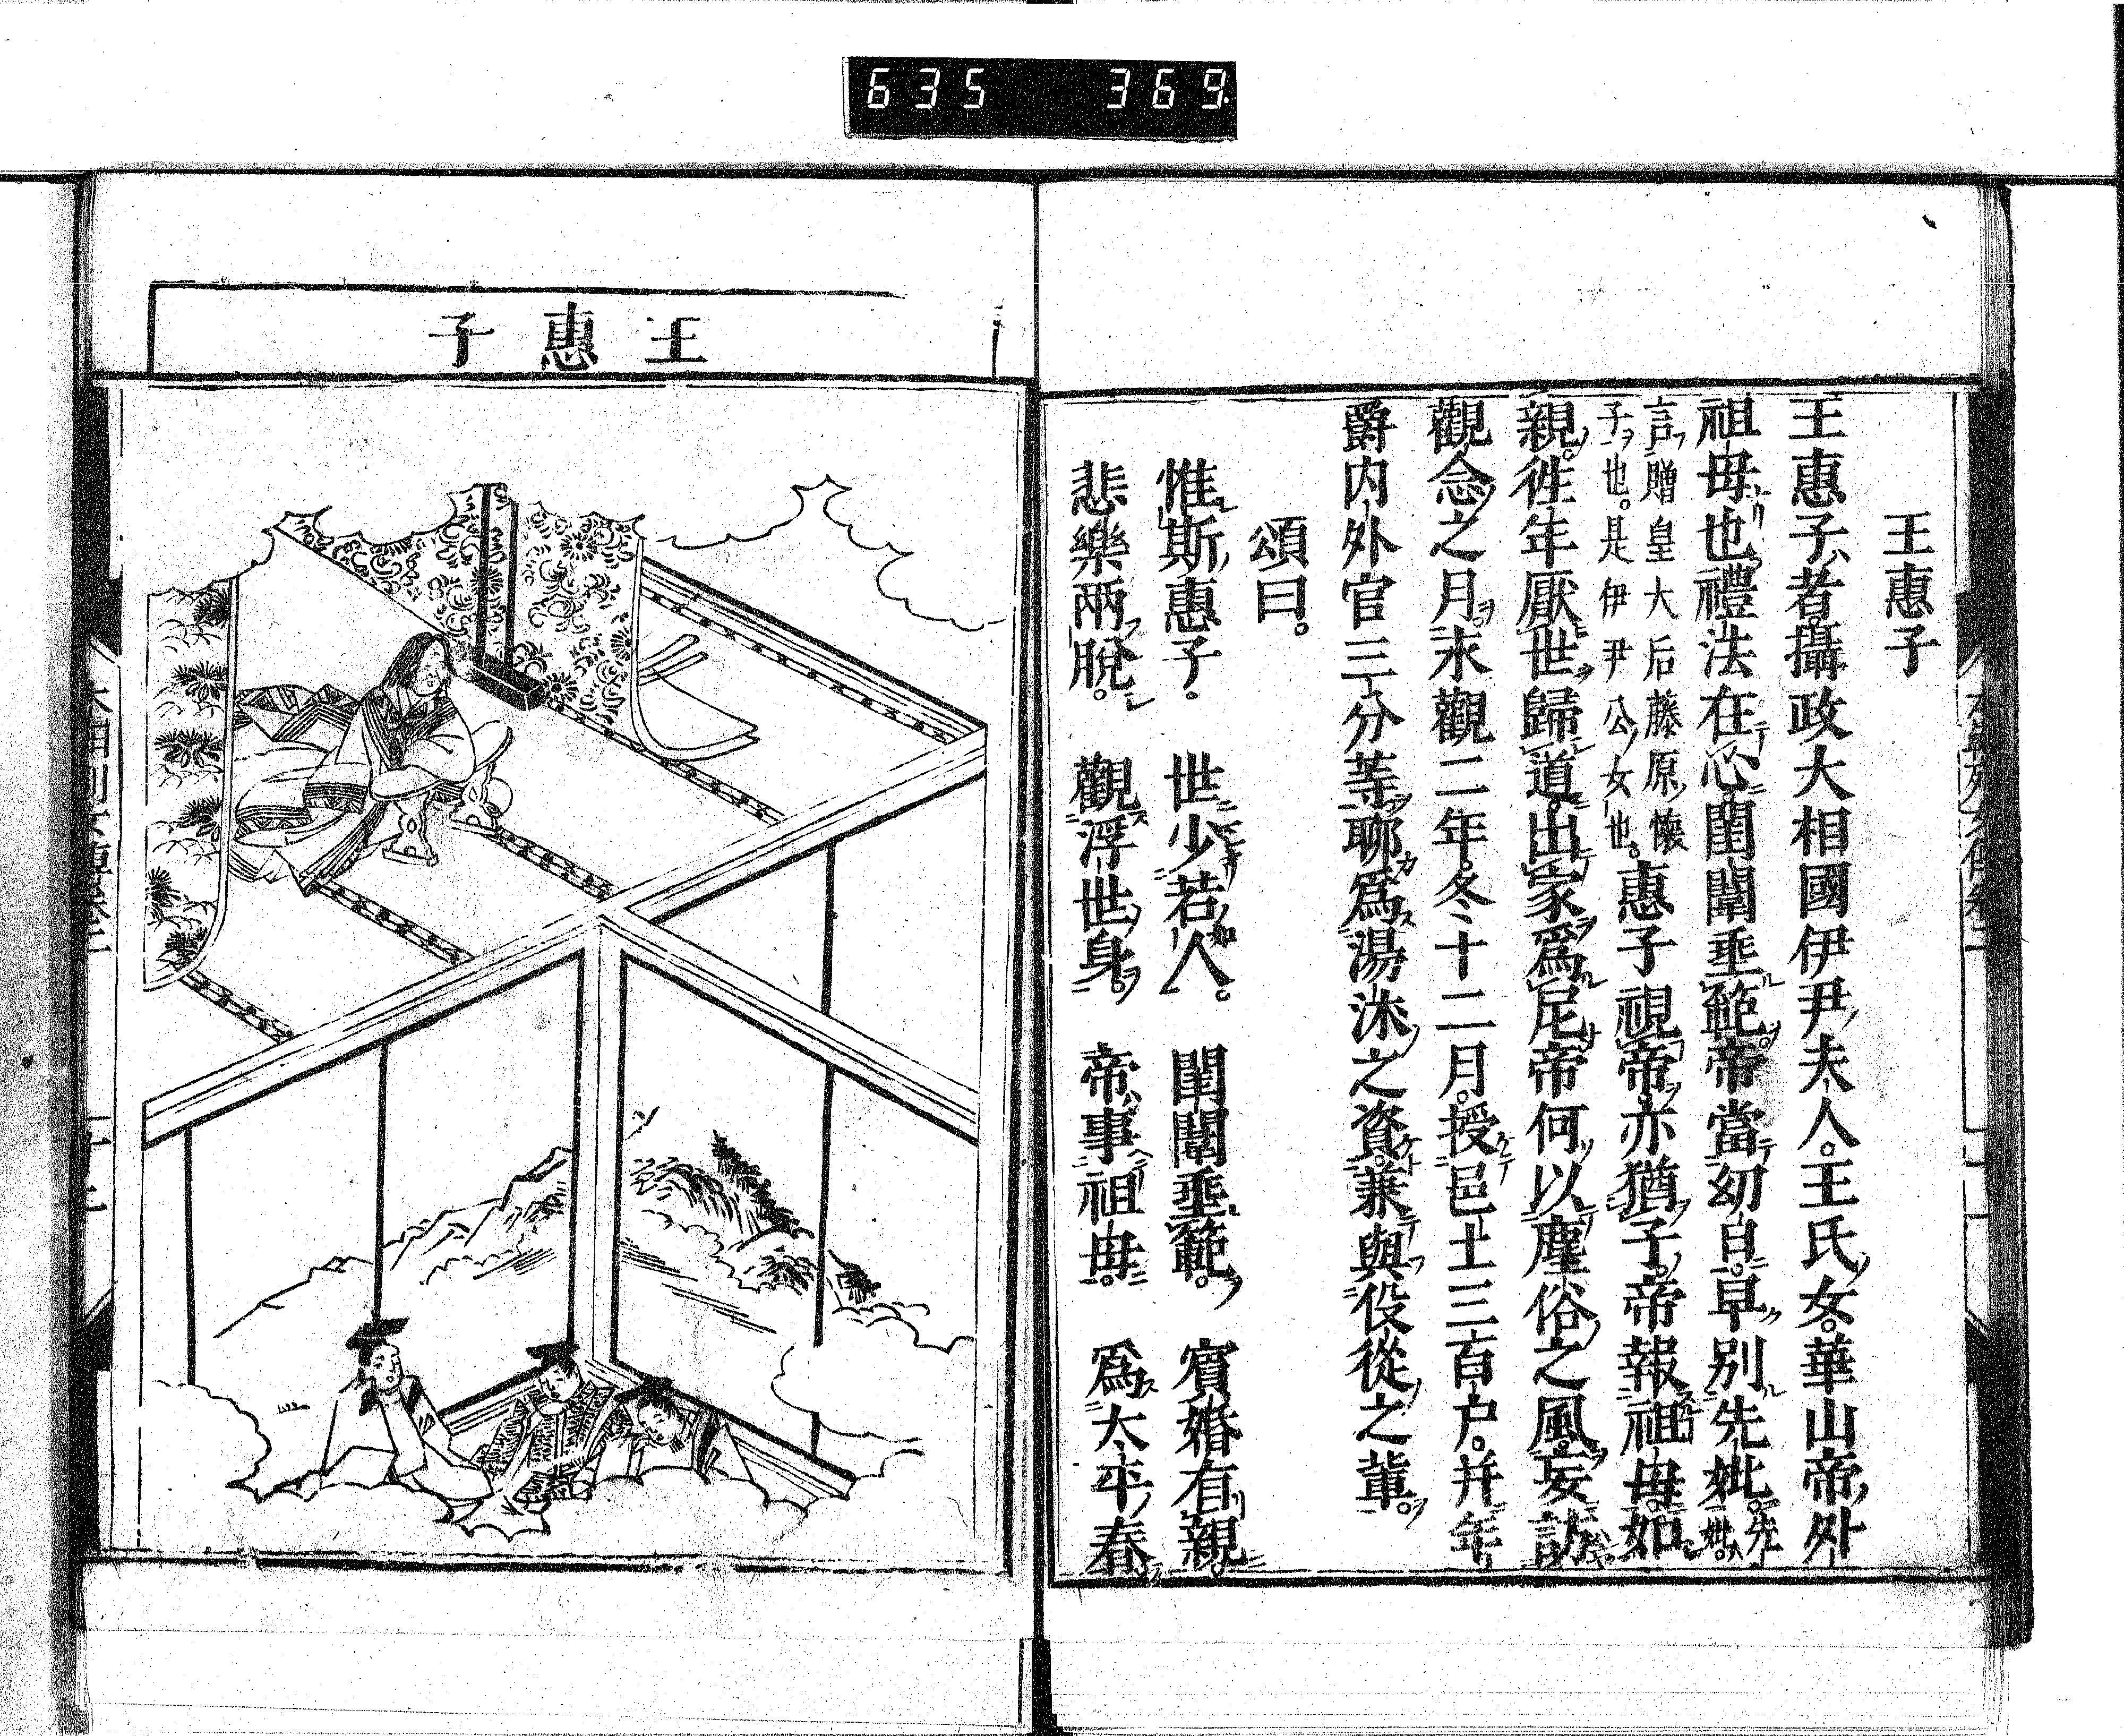 635 369
王惠子
王惠子者。攝政大相國伊尹夫人。王氏女。華山帝外
祖母也。禮法在心。閨闈垂範。帝當幼日。早別先妣。先妣。
言贈皇大后藤原懷
子也。是伊尹公女也。惠子視帝。亦猶子。帝報祖母。如
親。往年厭世歸道。出家爲尼。帝何以塵俗之風。妄訪
觀念之月。永觀二年。冬十二月。授邑土三百户。并年
爵内外官三分等。聊爲湯沐之資。兼與役從之輩。
頌曰。
惟斯惠子。 世少若人。 閨闈垂範。 賓婚有親。
悲樂兩脫。 觀浮世身。 帝事祖毋。 爲大平春
王惠子